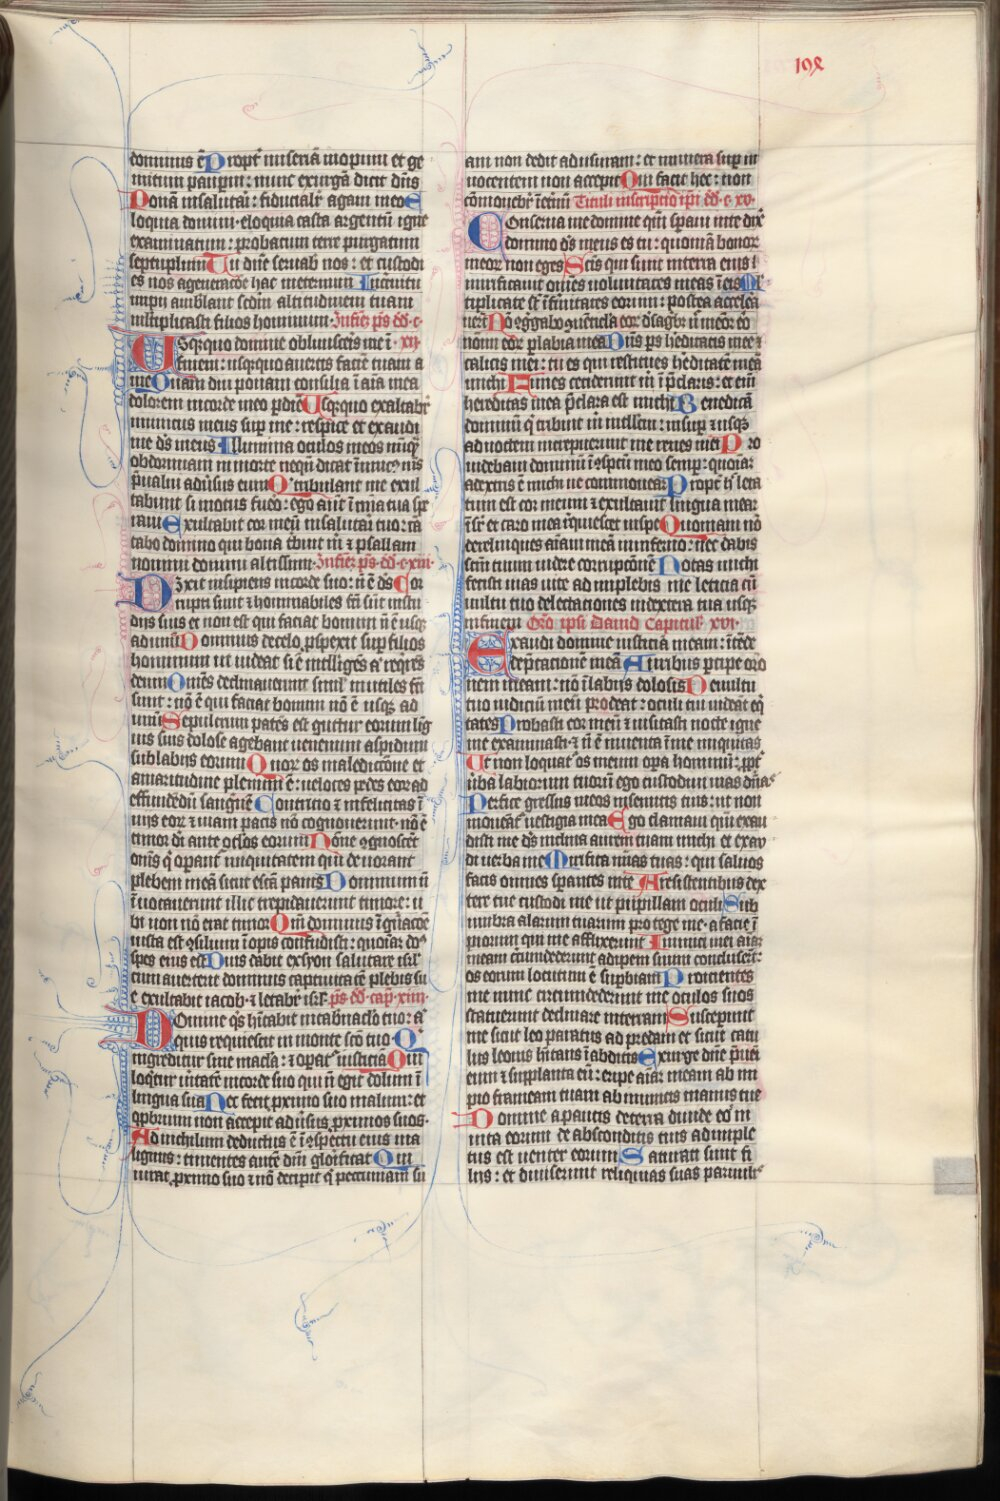 198
dominus ē Propt̄ miseriā inopum et ge
mitum paupm̄: nunc exurgā dicit dn̄s
Ponā in salutāi: fiducialit̄ agam in eo E
loquia domini · eloquia casta argentū igne
examinatum: probatum terre purgatum
septuplum Tu dn̄e seruab̄ nos: et custodi
es nos a generac̄oe hac in eternum In circuitu
impii ambulant sedm̄ altitudinem tuam
multiplicasti filios hominum · In finē ps̄ dd · c ·
Vsq̄quo domine obliuisceris me ī · xii ·
finem: usq̄quo auertis faciē tuam a
me Quamdiu ponam consilia ī aīa mea
dolorem in corde meo p̄ diē Vsq̄quo exaltabr̄
inimicus meus sup̄ me: respice et exaudi
me dn̄s deus Illumina oculos meos nūq̄
obdormiam in morte nequā dicat inimic̄ meus
p̄ualui aduersus eum Qui tribulant me exul
tabunt si motus fuero: ego aūt ī mīa tua sp̄e
raui Exultabit cor meū in salutari tuo: cā
tabo domino qui bona tribuit m̄ ⁊ psallam
nomini domini altissimi · In finē ps̄ · dd · c · xiii ·
Dixit insipiens in corde suo: nō ē ds̄ Cor
rupti sunt ⁊ abhominabiles fc̄i sūt in stu
diis suis et non est qui faciat bonum nō ē usq̄
ad unū Dominus de celo p̄spexit sup̄ filios
hominum ut uideat si ē intelligēs aut req̄res
deum Omn̄es declinauerunt simul inutiles fc̄i
sunt: nō ē qui faciat bonum nō ē usq̄ ad
unū Sepulcrum patēs est guttur eorum liḡ
uis suis dolose agebant uenenum aspidum
sub labiis eorum Quor̄ os maledictione et
amaritudine plenum ē: ueloces pedes eor̄ ad
effundendū sanguinē Contritio ⁊ infelicitas ī
uiis eor̄ ⁊ uiam pacis nō cognouerunt · nō ē
timor di ante oc̄los eorum Nonne ꝯgnoscēt
oms̄ q̄ operant̄ iniquitatem qui deuorant
plebem meā sicut escā panis Dominum n̄
īuocauerunt illic trepidauerunt timore: u
bi non erat timor Qm̄ dominus ī gn̄ac̄oe
iusta est ꝯsilium īopis confudisti: quoniam do
spes eius est Quis dabit ex syon salutare isrl̄
cum auerterit dominus captiuitatē plebis su
e exultabit iacob · ⁊ letabit̄ isrl̄ · ps̄ dd · cap̄ · xiiii ·
Domine q̄s hītabit in tab̄naclo tuo: a
quis requiescet in monte sc̄o tuo · Qi
ingreditur sine macla: ⁊ opat̄ iusticiā Qui
loqtur ūitatē in corde suo qui n̄ egit dolum ī
lingua sua Nec fecit p̄ximo suo malum: et
opprobrium non accepit aduersus p̄ximos suos ·
Ad nichilum deductus ē ī ꝯspectu eius ma
lignus: timentes autē dn̄m glorificat Qui
iurat p̄ximo suo ⁊ nō decipit q̄ pecuniam su
am non dedit ad usuram: et munera sup̄ in
nocentem non accepit Qui facit hec: non
cōmouebit̄ īetnū Tituli inscriptio ipi dd · c · xv ·
Conserua me domine qm̄ speraui in te dixi
domino ds̄ meus es tu: quoniā bonor̄
meor̄ non eges Scīs qui sunt in terra eius i
mirificauit omēs uoluntates meas ī eis Mul
tiplicate st̄ īfirmitates eorum: postea accelera
uerūt Nō ꝯgregabo ꝯuenticula eor̄ d sāguibꝯ n̄ meōr ero
nōim eor̄ p labia mea Dn̄s ps heditatis mee ⁊
calicis mei: tu es qui restitues hēditatē meā
michi Funes ceciderunt m̄ ī p̄claris: et enī
hereditas mea p̄clara est michi Benedicā
dominū q̄ tribuit m̄ intellectum: insup̄ ⁊ usq̄
ad noctem increpuerunt me renes mei Pro
uidebam dominū ī ꝯspectu meo semp̄: quoniam
a dextris ē michi ne commouear Propt̄ h̄ leta
tum est cor meum ⁊ exultauit lingua mea:
īsr̄ et caro mea reqiescet in spe Quoniam nō
derelinques aīam meā in inferno: nec dabis
scm̄ tuum uidere corrupcionē Notas michi
fecisti uias uite adimplebis me leticia cū
uultu tuo delectationes in dextera tua usq̄
in finem Orō ipsi Dauid Capitulū xvi ·
Exaudi domine iusticiā meam: ītēde
dep̄cationē meā Auribus p̄cipe orō
nem meam: nō ī labiis dolosis De uultu
tuo iudiciū meū prodeat: oculi tui uideāt eq̄
tates Probasti cor meū ⁊ uisitasti nocte igne
me examinasti ⁊ n̄ ē inuenta ī me iniquitas
Ut non loquat̄ os meum opa hominū: ppt̄
ūba labiorum tuorū ego custodiui uias duras
Perfice gressus meos in semitis tuis: ut non
moueāt̄ uestigia mea Ego clamaui qm̄ exau
disti me ds̄ inclina aurem tuam michi et exau
di uerba mea Mirifica mīas tuas: qui saluos
facis omnes sperantes in te A resistentibus dex
tere tue custodi me ut pupillam oculi Sub
umbra alarum tuarum protege me · a facie ī
piorum qui me afflixerunt Inimici mei aīam
meam circumdederunt adipem suum concluserūt:
os eorum locutum ē supbiam Proicientes
me nunc circumdederunt me oculos suos
statuerunt declinare in terram Susceperunt
me sicut leo paratus ad predam et sicut catu
lus leonis hītans ī abditis Exurge dn̄e p̄ueni
eum ⁊ supplanta eū: eripe aīam meam ab im
pio frameam tuam ab inimicis manus tue
Domine a paucis de terra diuide eos in
uita eorum de absconditis tuis adimple
tus est uenter eorum Saturati sunt fi
liis: et diuiserunt reliquias suas paruulis